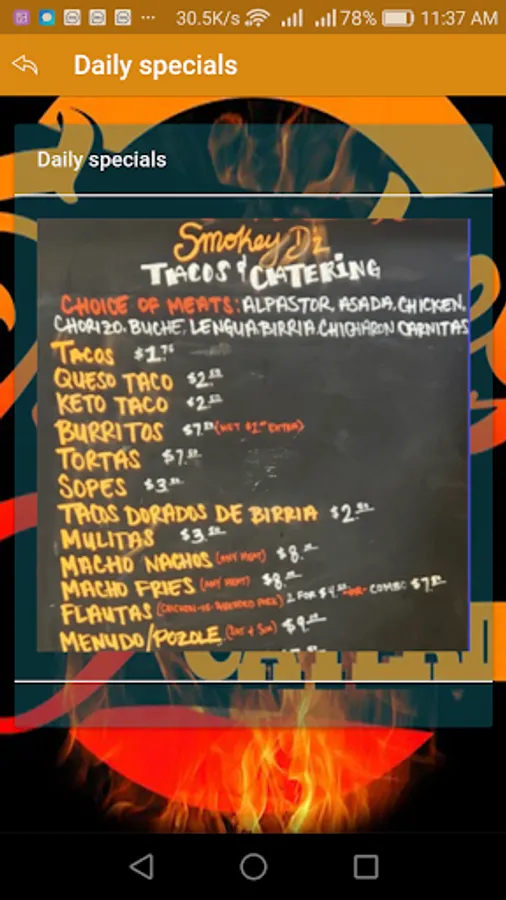 30.5K/s 78% 11:37 AM
Daily specials
Daily specials
Smokey D'z
TACOS & CATERING
CHOICE OF MEATS: ALPASTOR, ASADA, CHICKEN,
CHORIZO, BUCHE, LENGUA, BIRRIA, CHICHARON CARNITAS
TACOS $1.75
QUESO TACO $2.
KETO TACO $2.
BURRITOS $7. (WET EXTRA)
TORTAS $7.
SOPES $3.
TACOS DORADOS DE BIRRIA $2.
MULITAS $3.
MACHO NACHOS (ANY MEAT) $8.
MACHO FRIES (ANY MEAT) $8.
FLAUTAS 2 FOR $4. -OR- COMBO $7.
MENUDO/POZOLE (SAT & SUN) $9.